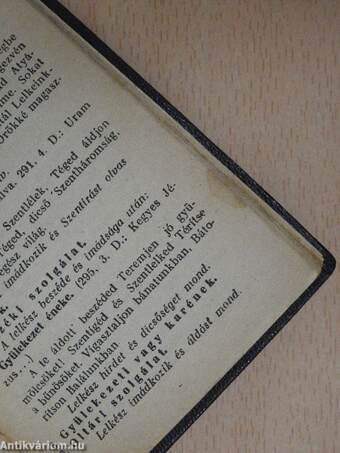 égbe
gezvén
ad Atyá-
nne. Sokat
tál Lelkeink-
Örökké magasz-
iva. 291. 4. D.: Uram
Szentlélek, Téged áldjon
Téged, dicső Szentháromság.
egész világ.
imádkozik és Szentírást olvas
zéki szolgálat.
A lelkész beszéde és imádsága után:
Gyülekezet éneke. (295. 3. D.: Kegyes Jé-
zus...)
A te áldott beszéded Teremjen jó gyü-
mölcsöket, Szentigéd és Szentlelked Térítse
a bűnösöket. Vigasztaljon bánatunkban, Báto-
rítson Halálunkban.
Lelkész hirdet és dicsőséget mond.
Gyülekezeti vagy karének.
Oltári szolgálat.
Lelkész imádkozik és áldást mond.
Antikvárium.hu